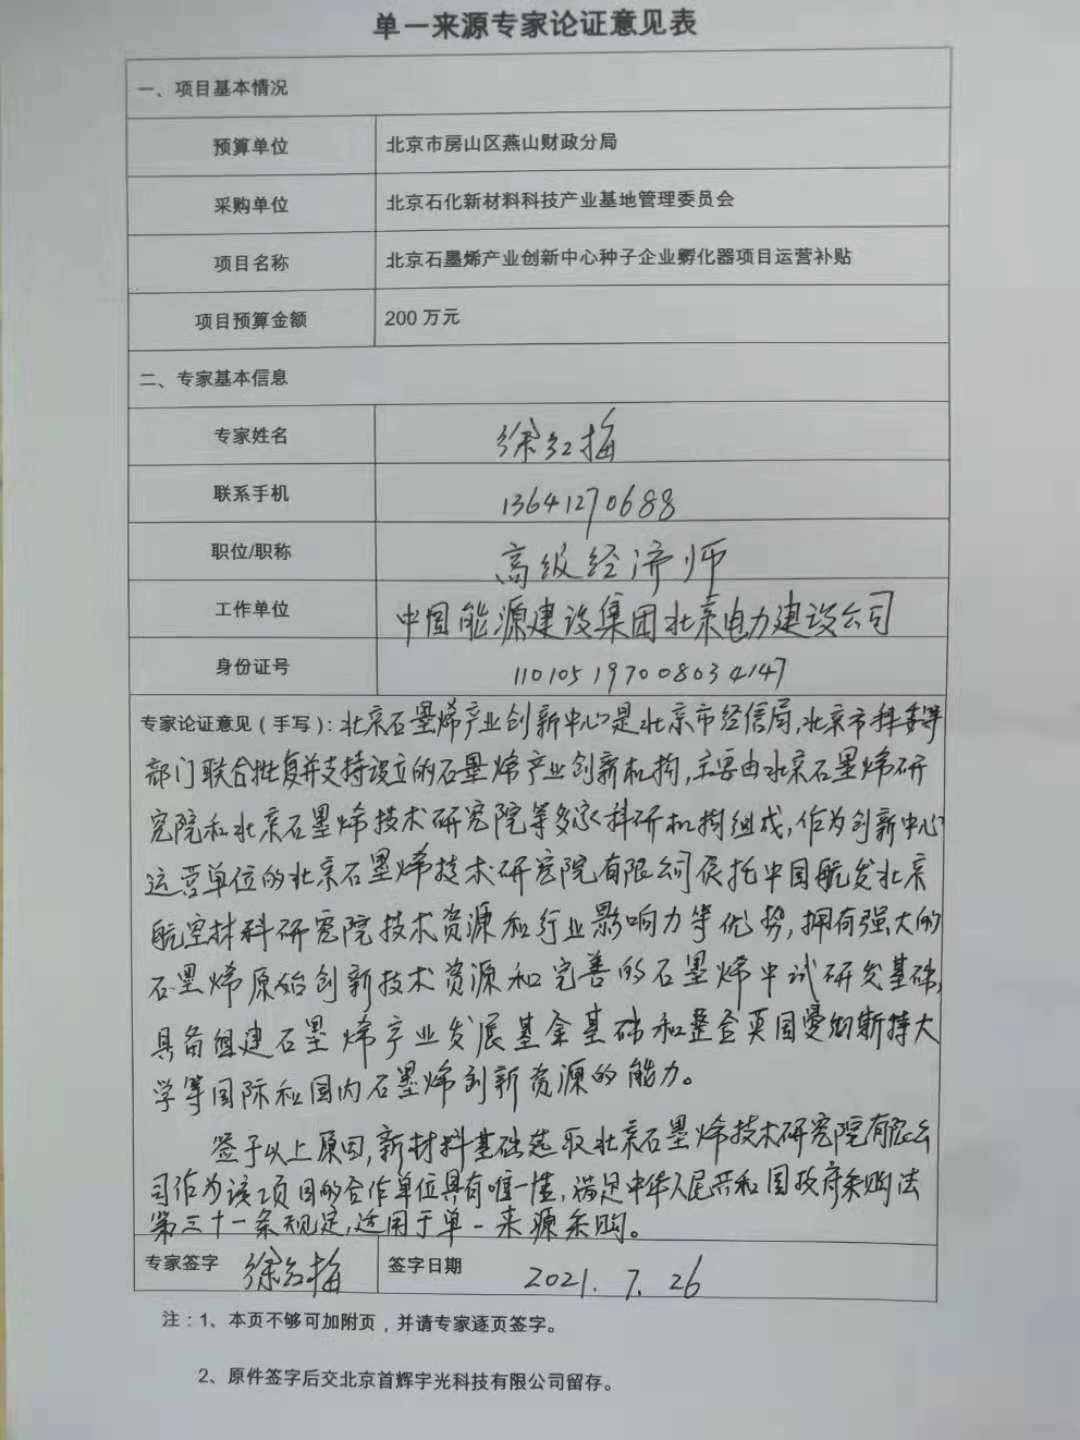 单一来源专家论证意见表
一、项目基本情况
预算单位 北京市房山区燕山财政分局
采购单位 北京石化新材料科技产业基地管理委员会
项目名称 北京石墨烯产业创新中心种子企业孵化器项目运营补贴
项目预算金额 200万元
二、专家基本信息
专家姓名 徐红梅
联系手机 13641270688
职位/职称 高级经济师
工作单位 中国能源建设集团北京电力建设公司
身份证号 110105197008034147
专家论证意见（手写）：北京石墨烯产业创新中心是北京市经信局,北京市科委等
部门联合批复并支持设立的石墨烯产业创新机构,主要由北京石墨烯研
究院和北京石墨烯技术研究院等多家科研机构组成,作为创新中心
运营单位的北京石墨烯技术研究院有限公司依托中国航发北京
航空材料研究院技术资源和行业影响力等优势,拥有强大的
石墨烯原始创新技术资源和完善的石墨烯中试研发基础,
具备组建石墨烯产业发展基金基础和整合英国曼彻斯特大
学等国际和国内石墨烯创新资源的能力。
鉴于以上原因,新材料基础选取北京石墨烯技术研究院有限公
司作为该项目的合作单位具有唯一性,满足中华人民共和国政府采购法
第三十一条规定,适用于单一来源采购。
专家签字 徐红梅 签字日期 2021.7.26
注：1、本页不够可加附页，并请专家逐页签字。
2、原件签字后交北京首辉宇光科技有限公司留存。